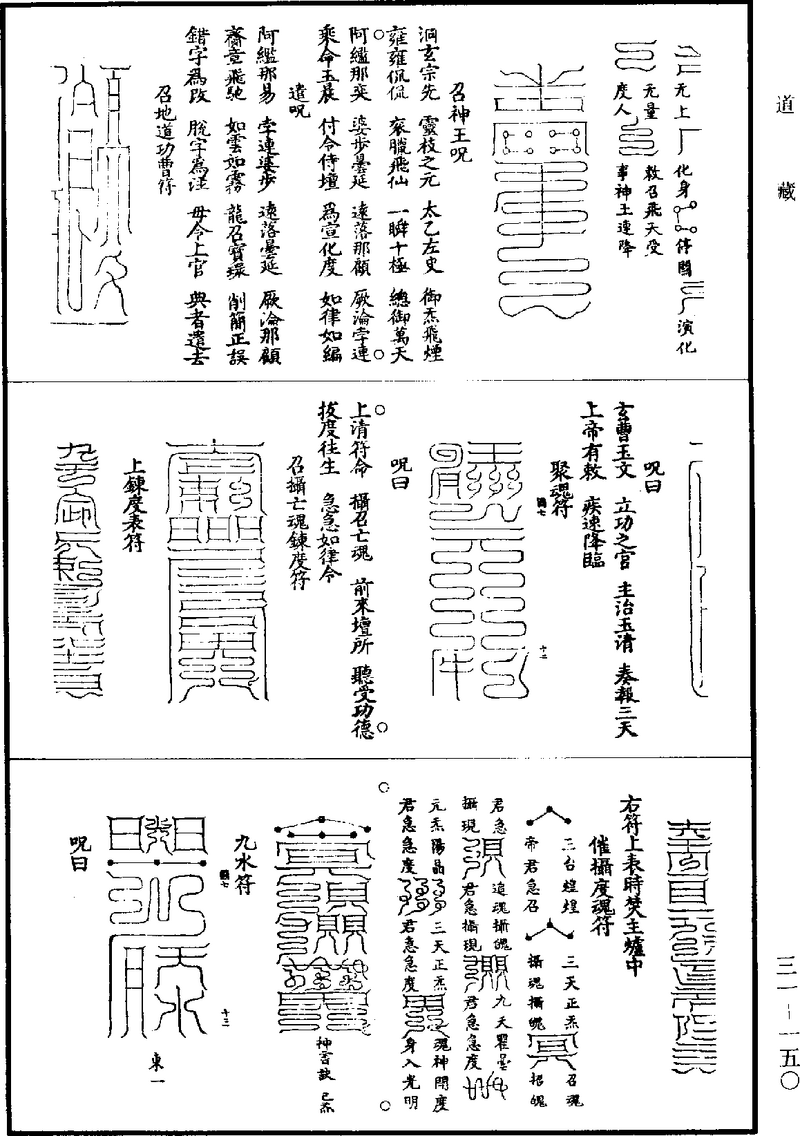 道藏
三一－一五〇
无上
化身
停關
演化
元量
度人
敕召飛天受
事神王速降
召神王呪
洞玄宗先　靈枝之元　太乙左史　御炁飛煙
雍雍侃侃　衮臘飛仙　一瞬十極　總御萬天
阿緼那奕　婆步曇延　遠落那顧　厥淪孛連
乘命玉晨　付令侍壇　為宣化度　如律如編
遣呪
阿緼那易　孛連婆步　遠落曇延　厥淪那顧
齋章飛馳　如雲如霧　龍召寶璪　削簡正誤
錯字為改　脫字為注　毋令上官　典者遣去
召地道功曹符
呪曰
玄曹玉文　立功之官　主治玉清　奏報三天
上帝有敕　疾速降臨
聚魂符
十二
呪曰
上清符命　攝召亡魂　前來壇所　聽受功德
拔度往生　急急如律令
召攝亡魂鍊度符
上鍊度表符
右符上表時焚主爐中
催攝度魂符
三台煌煌
帝君急召
三天正炁
攝魂攝魄
召魂
招魄
君急
攝現
追魂攝魄
君急攝現
九天瞿曇
君急急度
元炁陽晶
君急急度
三天正炁
君急急度
魂神開度
身入光明
九水符
十三
東一
呪曰